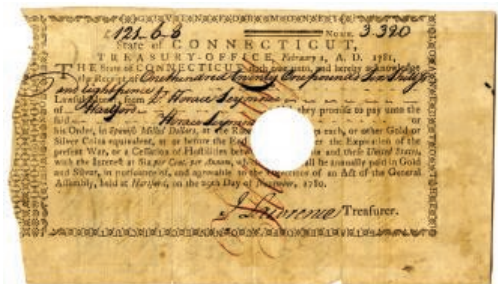 £ 121-6-8 NUMB. 3390
State of CONNECTICUT,
TREASURY-OFFICE, February 1, A. D. 1781.
THE State of CONNECTICUT doth owe unto, and hereby acknowledge
the Receipt of One hundred Twenty One pounds
and Eight pence
Lawful from Horace Seymour
of Hartford they promise to pay unto the
said Horace Seymour or
his Order, in Spanish Milled Dollars, at the Rate each, or other Gold or
Silver Coins equivalent, at or before the End the Expiration of the
present War, or a Cessation of Hostilities and these United States,
with the Interest at Six per Cent. per Annum, shall be annually paid in Gold
and Silver, and agreeable to the of an Act of the General
Assembly, held at Hartford, on the 29th Day of November, 1780.
J Lawrence Treasurer.